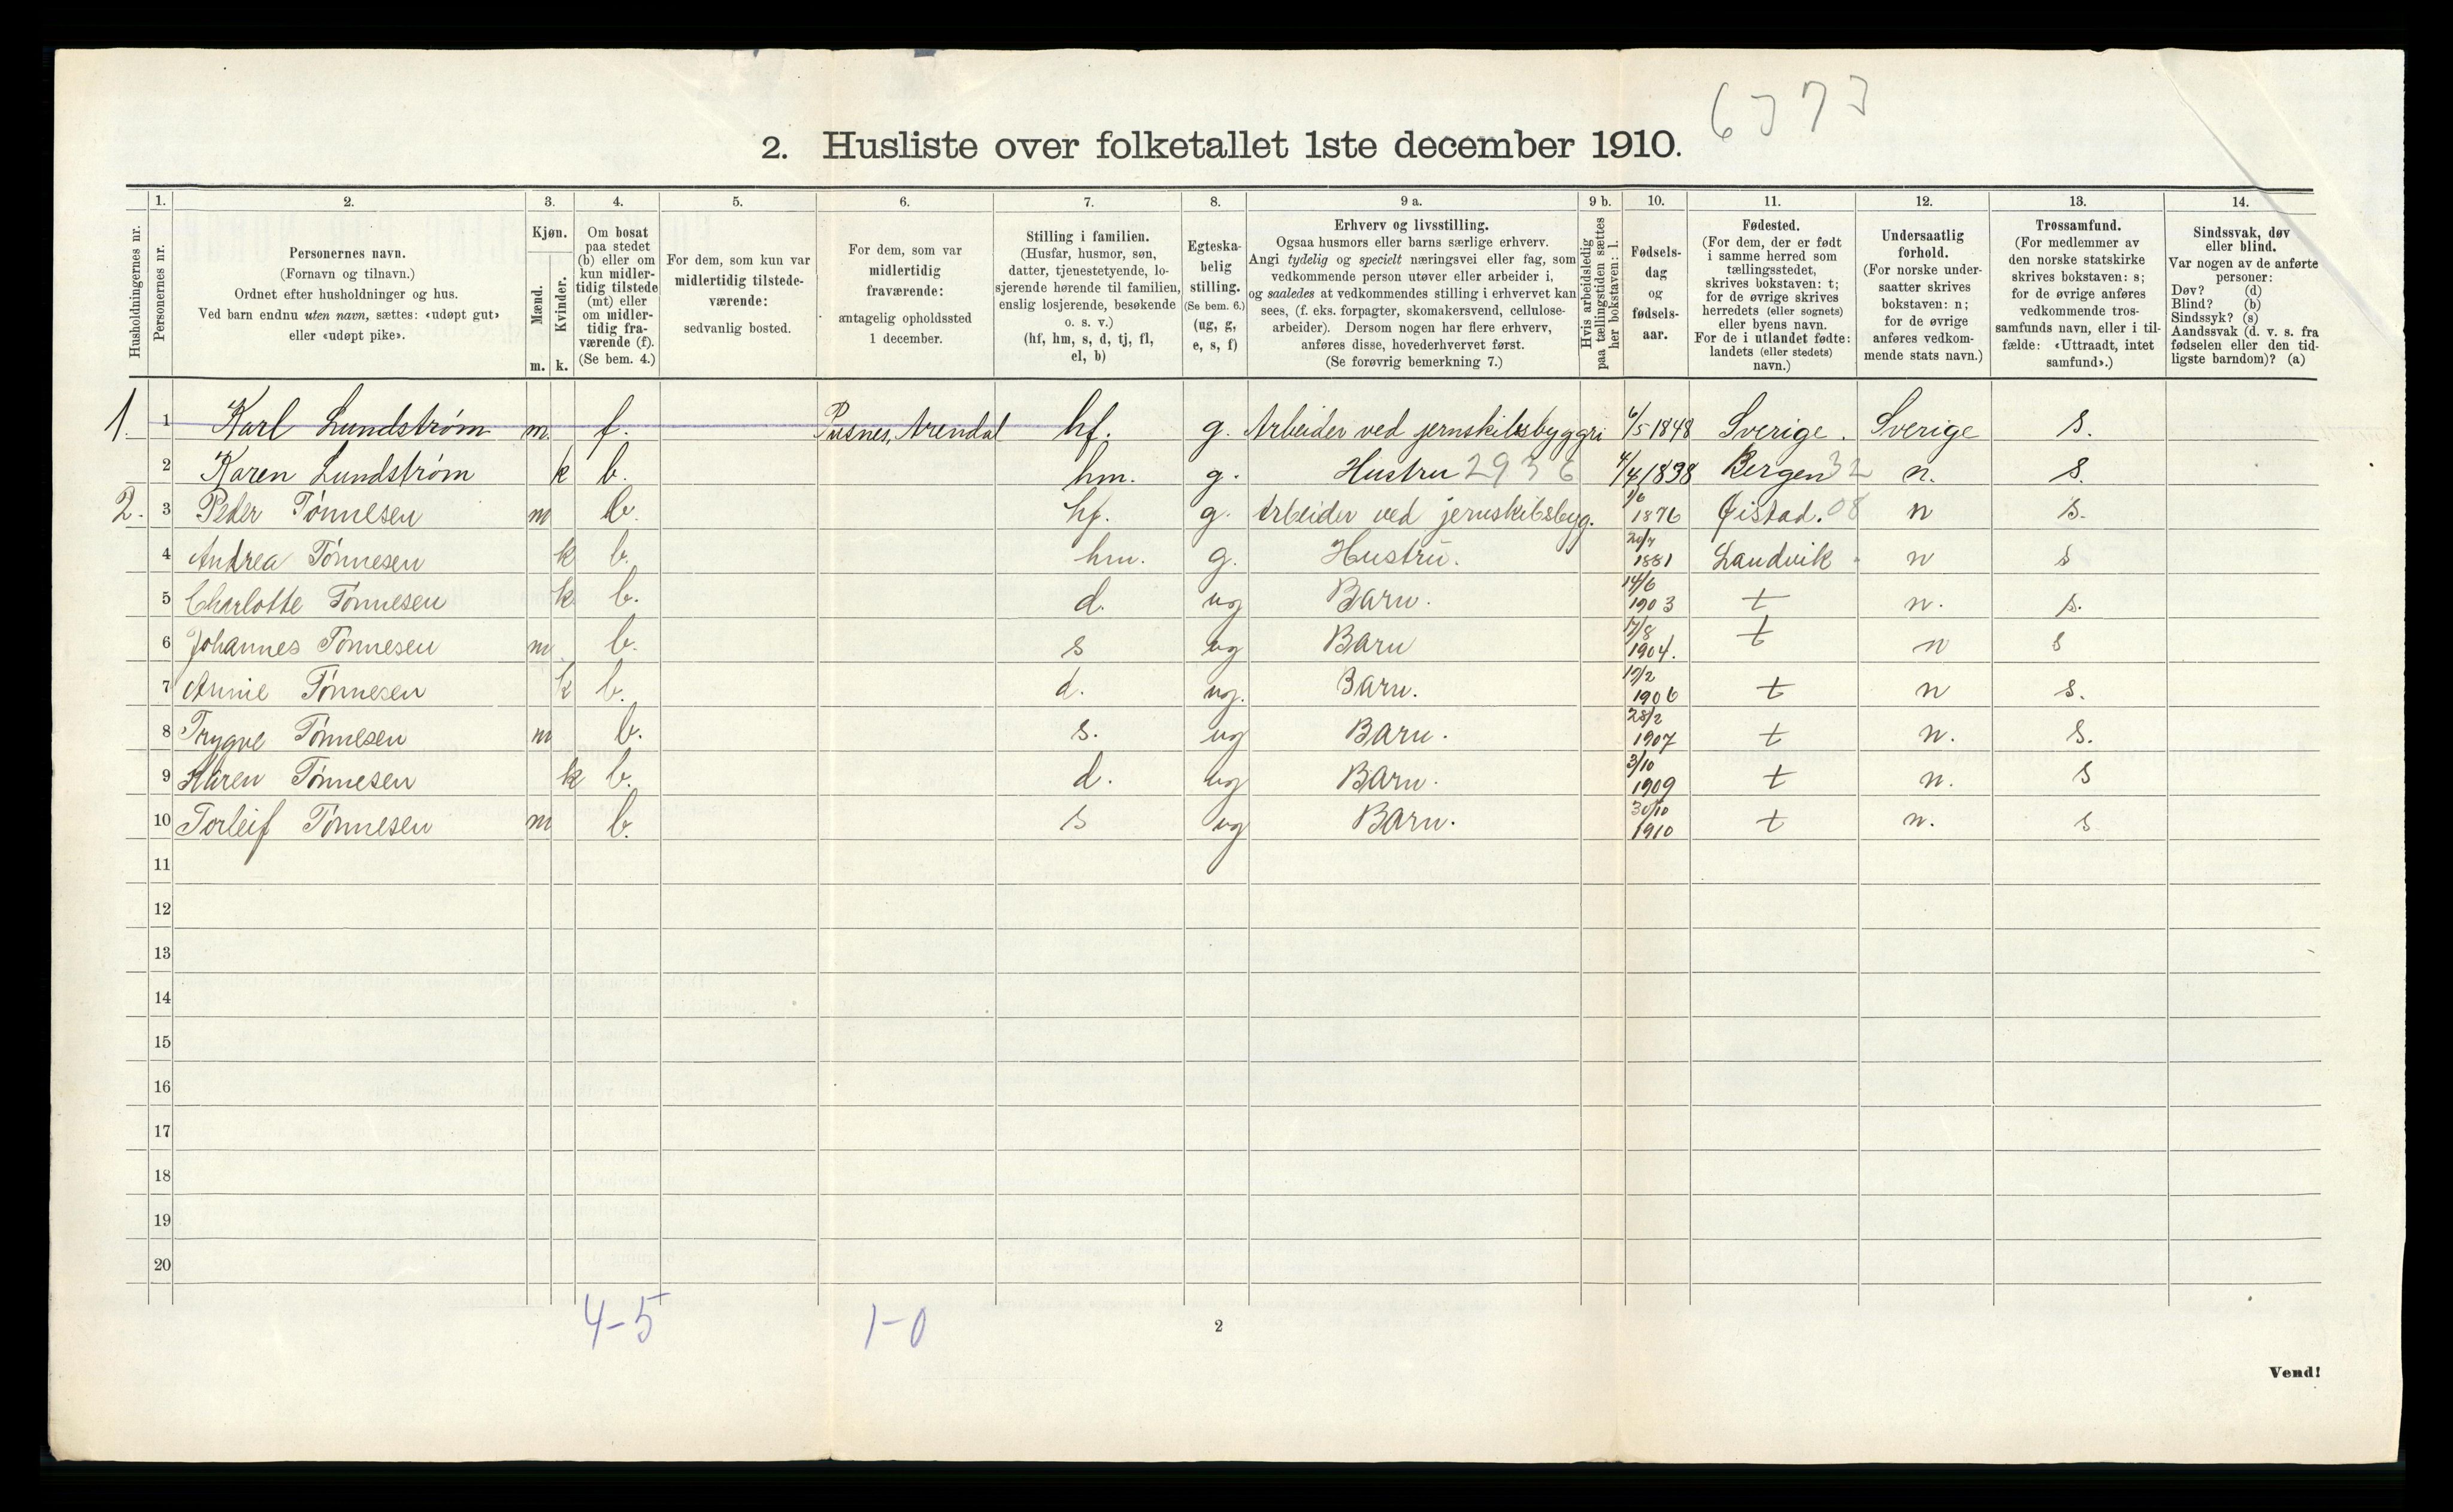 6373
2. Husliste over folketallet 1ste december 1910.
Husholdningernes nr.
1. Personernes nr.
2. Personernes navn.
(Fornavn og tilnavn.)
Ordnet efter husholdninger og hus.
Ved barn endnu uten navn, sættes: «udøpt gut»
eller «udøpt pike».
3. Kjøn.
Mænd. m.
Kvinder. k.
4. Om bosat
paa stedet
(b) eller om
kun midler-
tidig tilstede
(mt) eller
om midler-
tidig fra-
værende (f).
(Se bem. 4.)
5. For dem, som kun var
midlertidig tilstede-
værende:
sedvanlig bosted.
6. For dem, som var
midlertidig
fraværende:
antagelig opholdssted
1 december.
7. Stilling i familien.
(Husfar, husmor, søn,
datter, tjenestetyende, lo-
sjerende hørende til familien,
enslig losjerende, besøkende
o. s. v.)
(hf, hm, s, d, tj, fl,
el, b)
8. Egteska-
belig
stilling.
(Se bem. 6.)
(ug, g,
e, s, f)
9 a. Erhverv og livsstilling.
Ogsaa husmors eller barns særlige erhverv.
Angi tydelig og specielt næringsvei eller fag, som
vedkommende person utøver eller arbeider i,
og saaledes at vedkommendes stilling i erhvervet kan
sees, (f. eks. forpagter, skomakersvend, cellulose-
arbeider). Dersom nogen har flere erhverv,
anføres disse, hovederhvervet først.
(Se forøvrig bemerkning 7.)
9 b. Hvis arbeidsledig
paa tællingstiden sættes
her bokstaven: l.
10. Fødsels-
dag
og
fødsels-
aar.
11. Fødested.
(For dem, der er født
i samme herred som
tællingsstedet,
skrives bokstaven: t;
for de øvrige skrives
herredets (eller sognets)
eller byens navn.
For de i utlandet fødte:
landets (eller stedets)
navn.)
12. Undersaatlig
forhold.
(For norske under-
saatter skrives
bokstaven: n;
for de øvrige
anføres vedkom-
mende stats navn.)
13. Trossamfund.
(For medlemmer av
den norske statskirke
skrives bokstaven: s;
for de øvrige anføres
vedkommende tros-
samfunds navn, eller i til-
fælde: «Uttraadt, intet
samfund».)
14. Sindssvak, døv
eller blind.
Var nogen av de anførte
personer:
Døv? (d)
Blind? (b)
Sindssyk? (s)
Aandssvak (d. v. s. fra
fødselen eller den tid-
ligste barndom)? (a)
1. 1 Karl Lundstrøm m. f. Pusnes, Arendal hf. g. Arbeider ved jernskibsbyggri 6/5 1848 Sverige. Sverige s.
2 Karen Lundstrøm k b. hm. g. Hustru 2936 4/4 1838 Bergen 32 n. s.
2. 3 Peder Tønnesen m b. hf. g. Arbeider ved jernskibsbyg. 1/6 1876 Øistad. 08 n s.
4 Andrea Tønnesen k b. hm. g. Hustru. 20/7 1881 Landvik n s
5 Charlotte Tønnesen k b. d. ug Barn. 14/6 1903 t n. s.
6 Johannes Tønnesen m b. s ug Barn 17/8 1904. t n s
7 Annie Tønnesen k b. d. ug. Barn. 19/2 1906 t n s.
8 Trygve Tønnesen m b. s. ug Barn. 28/2 1907 t n. s.
9 Karen Tønnesen k b. d. ug Barn. 3/10 1909 t n. s
10 Torleif Tønnesen m b. s ug Barn. 30/10 1910 t n. s
11
12
13
14
15
16
17
18
19
20
4-5 1-0
2
Vend!